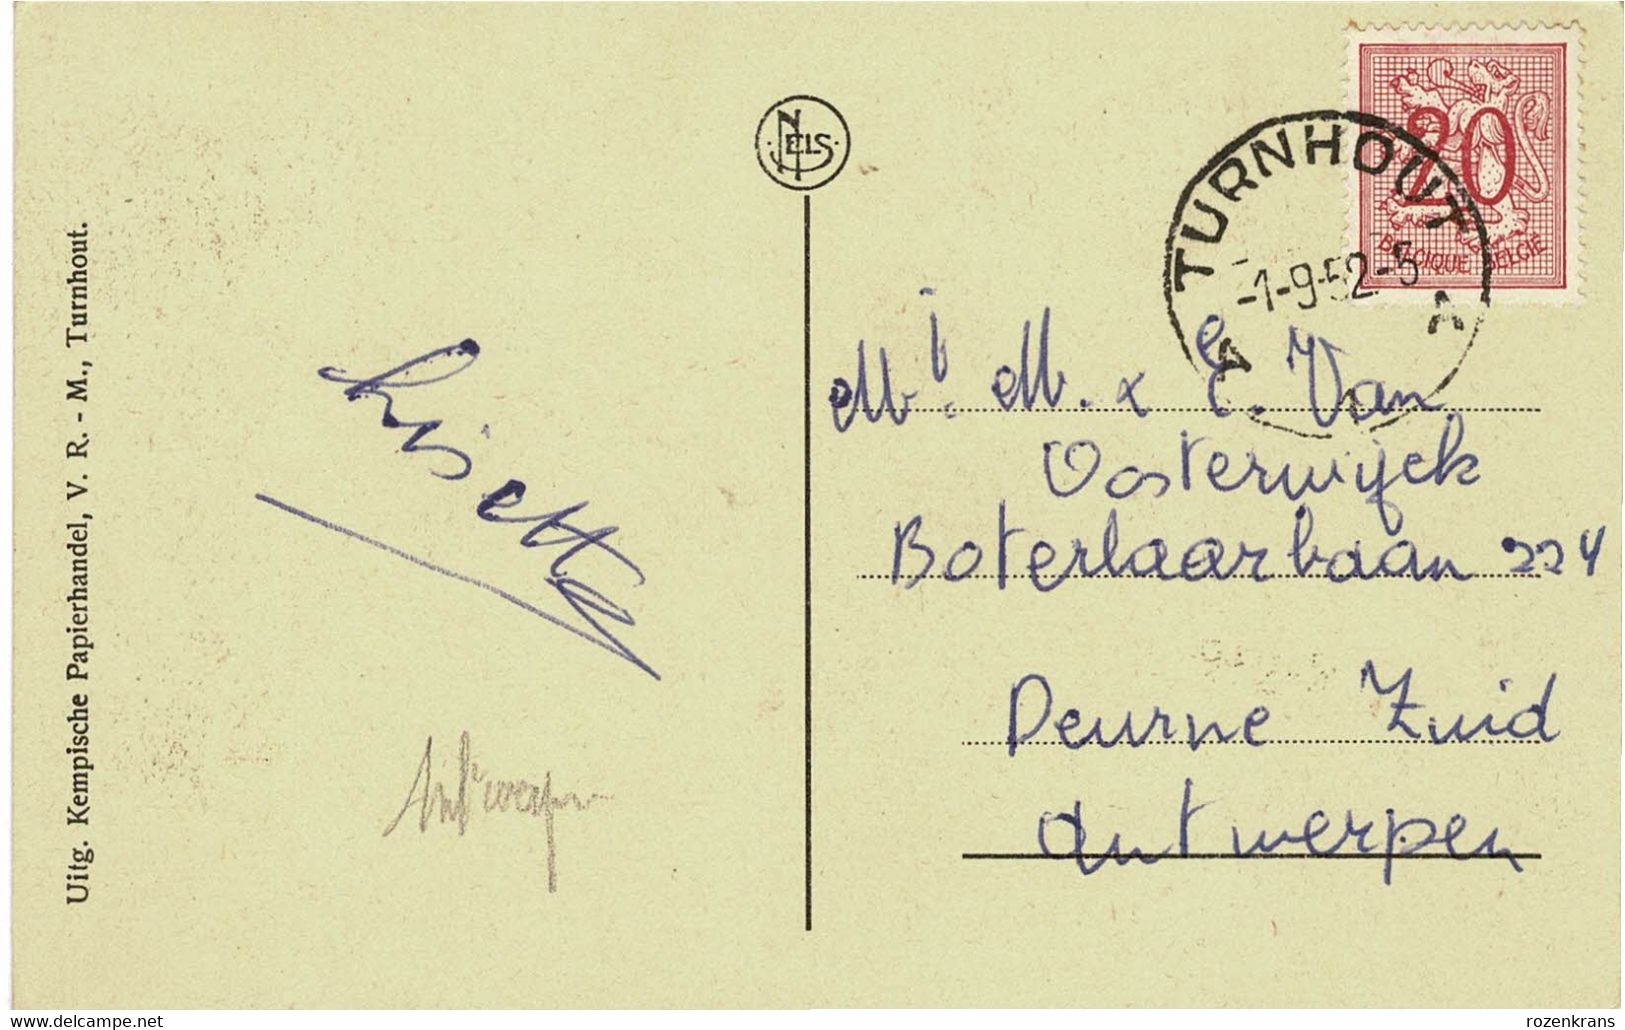 Uitg. Kempische Papierhandel, V. R. - M., Turnhout.
NELS
Lisette
Antwerpen
20
BELGIQUE BELGIË
TURNHOUT
-1-9-52-5
A A
M. & E. Van
Oosterwijck
Boterlaarbaan 224
Deurne Zuid
Antwerpen
www.delcampe.net
rozenkrans